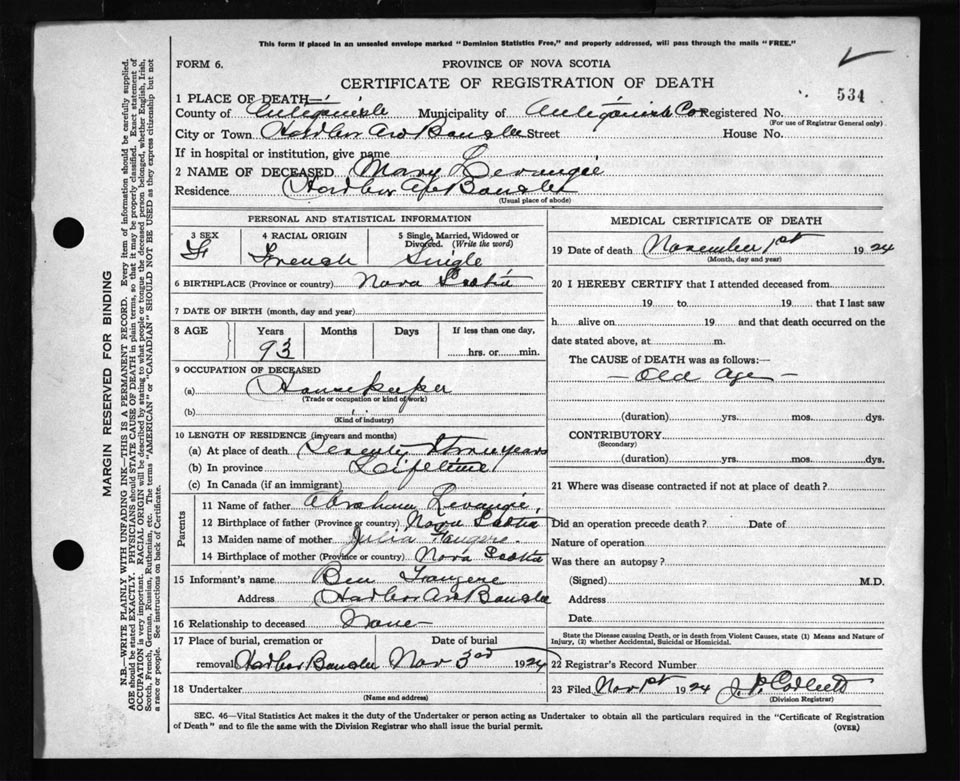 This form if placed in an unsealed envelope marked "Dominion Statistics Free," and properly addressed, will pass through the mails "FREE."
FORM 6.
PROVINCE OF NOVA SCOTIA
CERTIFICATE OF REGISTRATION OF DEATH
534
1 PLACE OF DEATH—
County of Antigonish Municipality of Antigonish Co Registered No.
(For use of Registrar General only)
City or Town Harbor Au Bouche Street House No.
If in hospital or institution, give name
2 NAME OF DECEASED Mary Levangie
Residence Harbor Au Bouche
(Usual place of abode)
PERSONAL AND STATISTICAL INFORMATION
3 SEX 4 RACIAL ORIGIN 5 Single, Married, Widowed or Divorced. (Write the word)
F French Single
6 BIRTHPLACE (Province or country) Nova Scotia
7 DATE OF BIRTH (month, day and year)
8 AGE Years Months Days If less than one day,
93 hrs. or min.
9 OCCUPATION OF DECEASED
(a) Housekeeper
(Trade or occupation or kind of work)
(b)
(Kind of industry)
10 LENGTH OF RESIDENCE (in years and months)
(a) At place of death Seventy three years
(b) In province Lifetime
(c) In Canada (if an immigrant)
Parents
11 Name of father Abraham Levangie,
12 Birthplace of father (Province or country) Nova Scotia
13 Maiden name of mother Julia
14 Birthplace of mother (Province or country) Nova Scotia
15 Informant's name Ben
Address Harbor Au Bouche
16 Relationship to deceased None
17 Place of burial, cremation or removal Date of burial
Harbor Bouche Nov 3rd 1924
18 Undertaker
(Name and address)
MEDICAL CERTIFICATE OF DEATH
19 Date of death November 1st 1924
(Month, day and year)
20 I HEREBY CERTIFY that I attended deceased from
19 to 19 that I last saw
h alive on 19 and that death occurred on the
date stated above, at m.
The CAUSE of DEATH was as follows:—
— Old Age —
(duration) yrs. mos. dys.
CONTRIBUTORY
(Secondary)
(duration) yrs. mos. dys.
21 Where was disease contracted if not at place of death?
Did an operation precede death? Date of
Nature of operation
Was there an autopsy?
(Signed) M.D.
Address
Date
State the Disease causing Death, or in death from Violent Causes, state (1) Means and Nature of
Injury, (2) whether Accidental, Suicidal or Homicidal.
22 Registrar's Record Number
23 Filed Nov 1st 1924 J. P.
(Division Registrar)
SEC. 46—Vital Statistics Act makes it the duty of the Undertaker or person acting as Undertaker to obtain all the particulars required in the "Certificate of Registration
of Death" and to file the same with the Division Registrar who shall issue the burial permit.
(OVER)
MARGIN RESERVED FOR BINDING
N.B.—WRITE PLAINLY WITH UNFADING INK—THIS IS A PERMANENT RECORD. Every item of information should be carefully supplied.
AGE should be stated EXACTLY. PHYSICIANS should STATE CAUSE OF DEATH in plain terms, so that it may be properly classified. Exact statement of
OCCUPATION is very important. RACIAL ORIGIN will be described by stating to what people or tongue the deceased person belonged, whether English, Irish,
Scotch, French, German, Russian, Ruthenian, etc. The terms "AMERICAN" or "CANADIAN" SHOULD NOT BE USED as they express citizenship but not
a race or people. See instructions on back of Certificate.